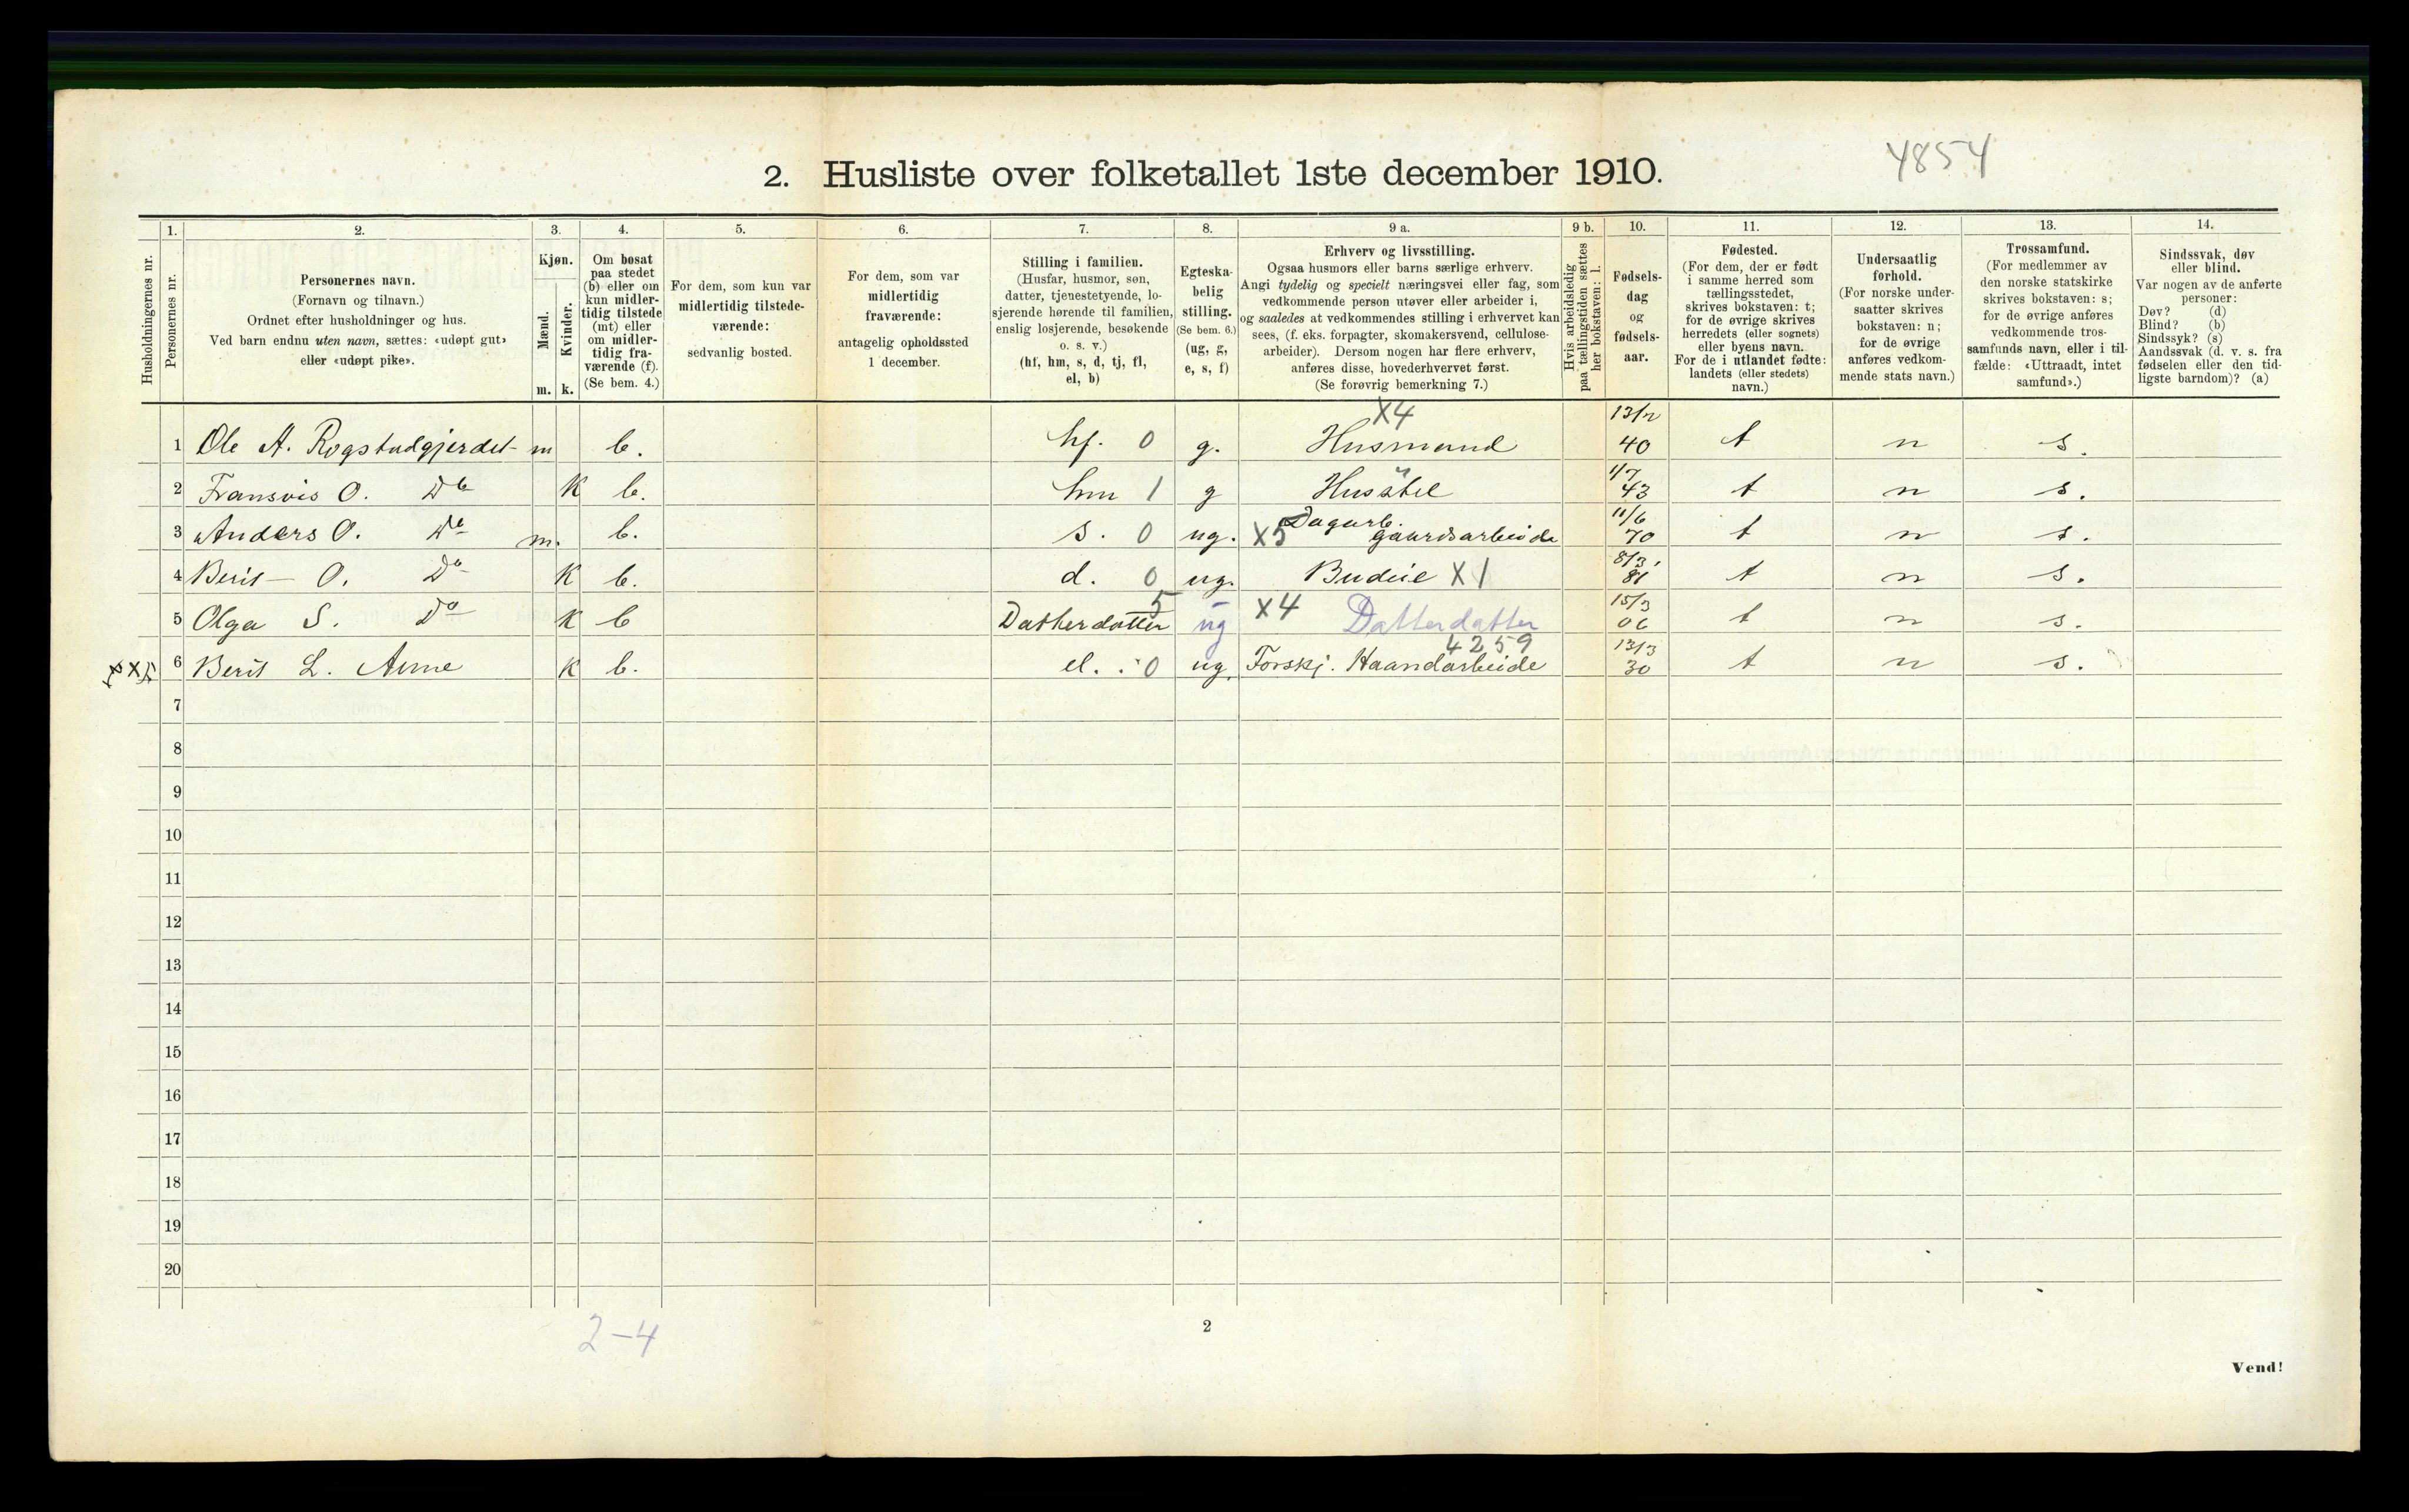 4854
2. Husliste over folketallet 1ste december 1910.
Husholdningernes nr.
1.
Personernes nr.
2.
Personernes navn.
(Fornavn og tilnavn.)
Ordnet efter husholdninger og hus.
Ved barn endnu uten navn, sættes: «udøpt gut»
eller «udøpt pike».
3.
Kjøn.
Mænd.
m.
Kvinder.
k.
4.
Om bosat
paa stedet
(b) eller om
kun midler-
tidig tilstede
(mt) eller
om midler-
tidig fra-
værende (f).
(Se bem. 4.)
5.
For dem, som kun var
midlertidig tilstede-
værende:
sedvanlig bosted.
6.
For dem, som var
midlertidig
fraværende:
antagelig opholdssted
1 december.
7.
Stilling i familien.
(Husfar, husmor, søn,
datter, tjenestetyende, lo-
sjerende hørende til familien,
enslig losjerende, besøkende
o. s. v.)
(hf, hm, s, d, tj, fl,
el, b)
8.
Egteska-
belig
stilling.
(Se bem. 6.)
(ug, g,
e, s, f)
9 a.
Erhverv og livsstilling.
Ogsaa husmors eller barns særlige erhverv.
Angi tydelig og specielt næringsvei eller fag, som
vedkommende person utøver eller arbeider i,
og saaledes at vedkommendes stilling i erhvervet kan
sees, (f. eks. forpagter, skomakersvend, cellulose-
arbeider). Dersom nogen har flere erhverv,
anføres disse, hovederhvervet først.
(Se forøvrig bemerkning 7.)
9 b.
Hvis arbeidsledig
paa tællingstiden sættes
her bokstaven: l.
10.
Fødsels-
dag
og
fødsels-
aar.
11.
Fødested.
(For dem, der er født
i samme herred som
tællingsstedet,
skrives bokstaven: t;
for de øvrige skrives
herredets (eller sognets)
eller byens navn.
For de i utlandet fødte:
landets (eller stedets)
navn.)
12.
Undersaatlig
forhold.
(For norske under-
saatter skrives
bokstaven: n;
for de øvrige
anføres vedkom-
mende stats navn.)
13.
Trossamfund.
(For medlemmer av
den norske statskirke
skrives bokstaven: s;
for de øvrige anføres
vedkommende tros-
samfunds navn, eller i til-
fælde: «Uttraadt, intet
samfund».)
14.
Sindssvak, døv
eller blind.
Var nogen av de anførte
personer:
Døv? (d)
Blind? (b)
Sindssyk? (s)
Aandssvak (d. v. s. fra
fødselen eller den tid-
ligste barndom)? (a)
X4 13/2
1 Ole A. Rogstadgjerdet m b. hf. 0 g. Husmand 40 t n s.
1/7
2 Fransvis O. Do K b. hm 1 g Husstel 43 t n s.
Dagarb. 11/6
3 Anders O. Do m. b. s. 0 ug. X5 gaardsarbeide 70 t n s.
8/3.
4 Berit O. Do K b. d. 0 ug. Budeie X1 81 t n s.
5 15/3
5 Olga S. Do K b Datterdatter ug X4 Datterdatter 06 t n s.
4259 13/3
6 Berit L. Aune K b. el. 0 ug. Forskj. Haandarbeide 30 t n s.
7
8
9
10
11
12
13
14
15
16
17
18
19
20
2-4
2
Vend!